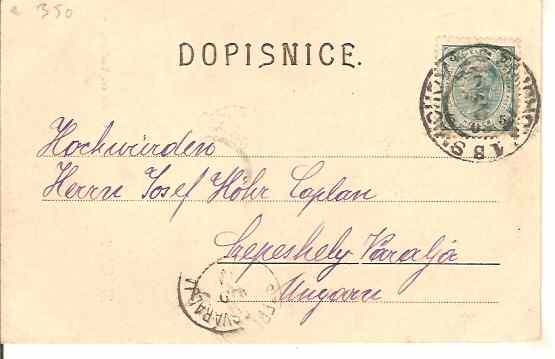 350
DOPISNICE.
5 5
Hochwürden
Herrn Josef Höhr Caplan
Szepeshely Váralja
Ungarn